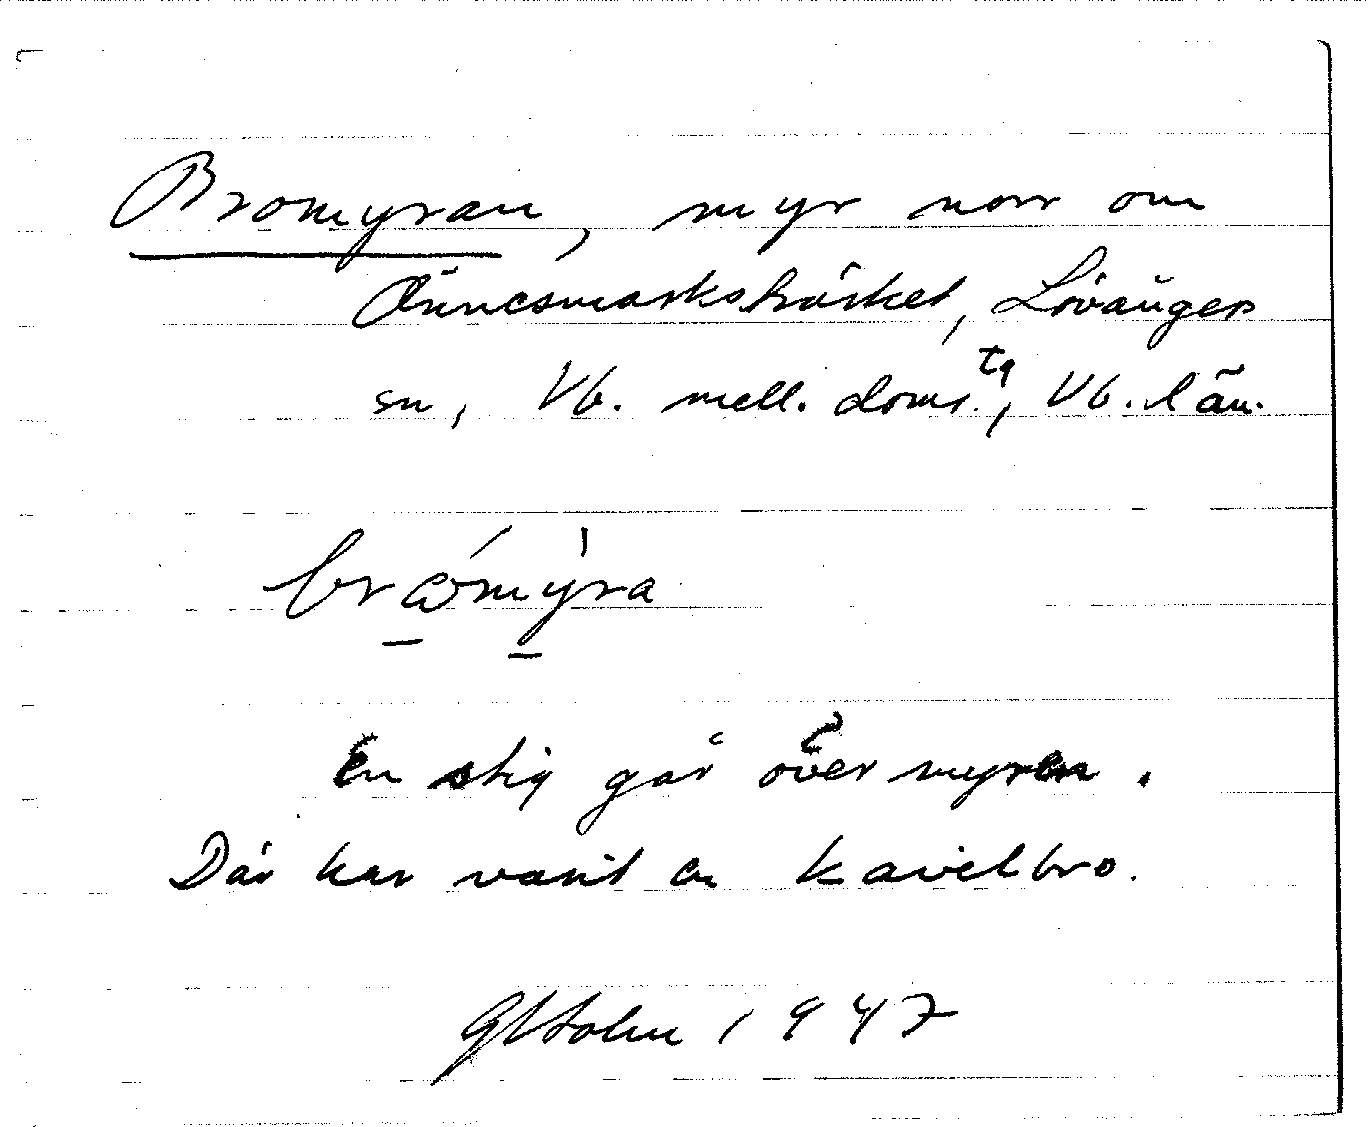 Bromyran, myr norr om
Önnesmarksträsket, Lövånger
sn, Vb. mell. doms.tg, Vb. län.
bråmyra
En stig går över myren.
Där har varit en kavelbro.
Holm 1947